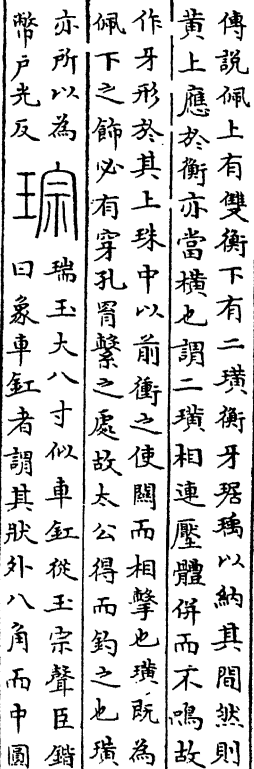 傳說佩上有雙衡下有二璜衡牙琚瑀以納其間然則
黄上應於衡亦當橫也謂二璜相連壓體併而不鳴故
作牙形於其上珠中以前衝之使關而相擊也璜既為
佩下之飾必有穿孔罥繫之處故太公得而釣之也璜
亦所以為
幣户光反
琮
瑞玉大八寸似車釭從玉宗聲臣鍇
曰象車釭者謂其狀外八角而中圓